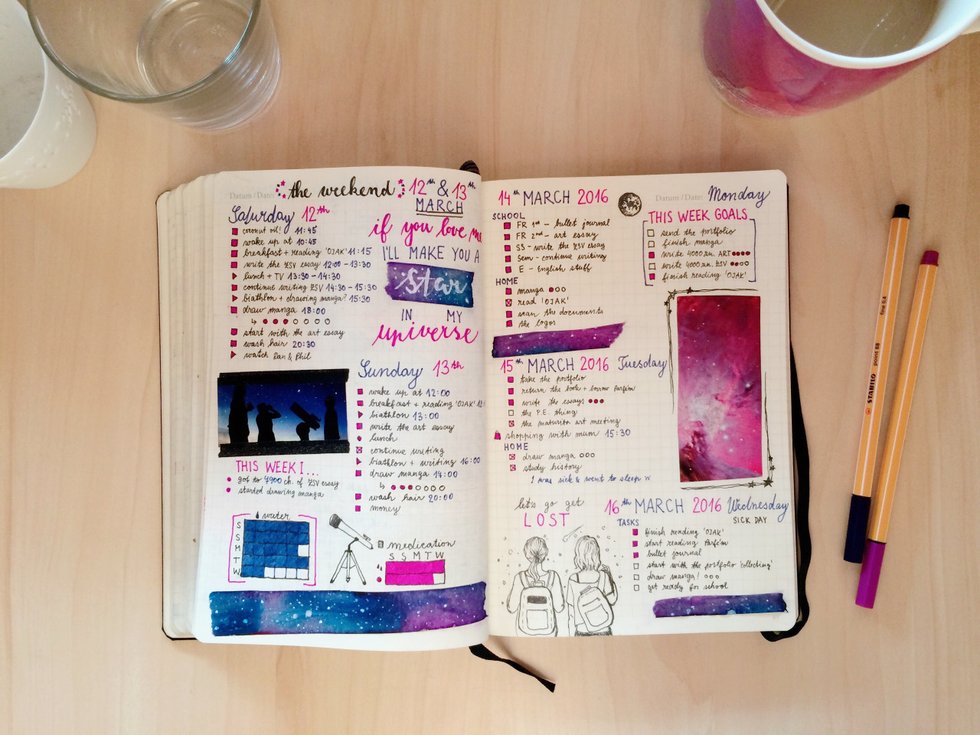 Datum / Date:
the weekend
12th & 13th
MARCH
Saturday 12th
coconut oil! 11:45
wake up at 10:45
breakfast + reading 'OJAK' 11:15
write the ZSV essay 12:00 - 13:30
lunch + TV 13:30 - 14:30
continue writing ZSV 14:30 - 15:30
biathlon + drawing manga? 15:30
draw manga 18:00
start with the art essay
wash hair 20:30
watch Dan & Phil
if you love me
I'LL MAKE YOU A
star
IN MY
universe
Sunday 13th
wake up at 12:00
breakfast + reading 'OJAK'
biathlon 13:00
write the art essay
lunch
continue writing
biathlon + writing 16:00
draw manga 14:00
wash hair 20:00
money
THIS WEEK I...
got to 4900 ch. of ZSV essay
started drawing manga
water
S
S
M
T
W
medication
S S M T W
14th MARCH 2016
Datum / Date:
Monday
SCHOOL
FR 1st - bullet journal
FR 2nd - art essay
SS - write the ZSV essay
Sem - continue writing
E - English stuff
HOME
manga
read 'OJAK'
scan the documents
the logos
THIS WEEK GOALS
send the portfolio
finish manga
write 4000 zn. ART
write 4000 zn. ZSV
finish reading 'OJAK'
15th MARCH 2016 Tuesday
take the portfolio
return the book + borrow Parfém
write the essays
the P.E. thing
the maturita art meeting
shopping with mum 15:30
HOME
draw manga
study history
I was sick & went to sleep
let's go get
LOST
16th MARCH 2016 Wednesday
TASKS
SICK DAY
finish reading 'OJAK'
start reading Parfém
bullet journal
start with the portfolio 'collecting'
draw manga!
get ready for school
STABILO point 88 fine 0.4